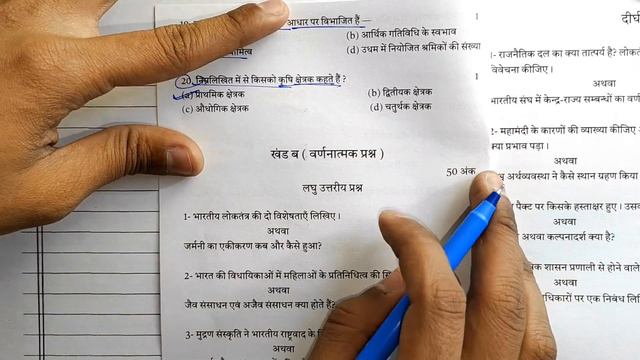 आधार पर विभाजित हैं—
1
(b) आर्थिक गतिविधि के स्वभाव
(d) उद्यम में नियोजित श्रमिकों की संख्या
20. निम्नलिखित में से किसको कृषि क्षेत्रक कहते हैं ?
1
(a) प्राथमिक क्षेत्रक
(b) द्वितीयक क्षेत्रक
(c) औद्योगिक क्षेत्रक
(d) चतुर्थक क्षेत्रक
खंड ब ( वर्णनात्मक प्रश्न )
50 अंक
लघु उत्तरीय प्रश्न
1- भारतीय लोकतंत्र की दो विशेषताएँ लिखिए।
अथवा
जर्मनी का एकीकरण कब और कैसे हुआ?
2- भारत की विधायिकाओं में महिलाओं के प्रतिनिधित्व की
अथवा
जैव संसाधन एवं अजैव संसाधन क्या होते हैं?
3- मुद्रण संस्कृति ने भारतीय राष्ट्रवाद के
अथवा
दीर्घ
राजनैतिक दल का क्या तात्पर्य है?
विवेचना कीजिए।
अथवा
भारतीय संघ में केन्द्र-राज्य सम्बन्धों का
2- महामंदी के कारणों की व्याख्या कीजिए
प्रभाव पड़ा।
अथवा
अर्थव्यवस्था ने कैसे स्थान ग्रहण किया
पैक्ट पर किसके हस्ताक्षर हुए।
अथवा
अथवा कल्पनादर्श क्या है?
शासन प्रणाली से होने वाले
अथवा
पर एक निबंध